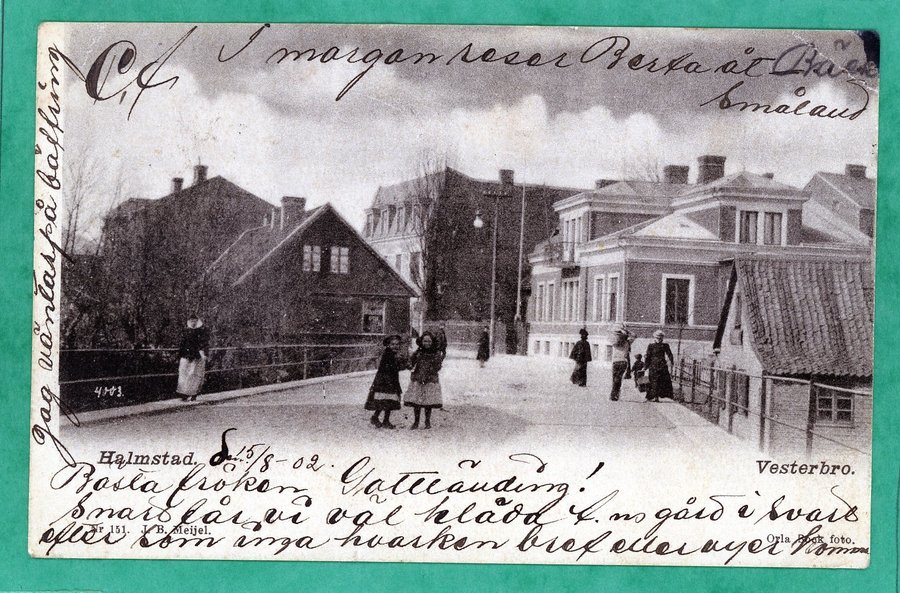 I morgon reser Berta åt
Småland
Jag väntas på bättring
4003.
Halmstad. d. 15/8-02.
Vesterbro.
Bästa fröken Gottländing!
Snart får vi väl kläda f. n gård i svart
Nr 151. J. B. Meijel.
Orla Bock foto.
efter som inga hvarken bref eller vyer komm